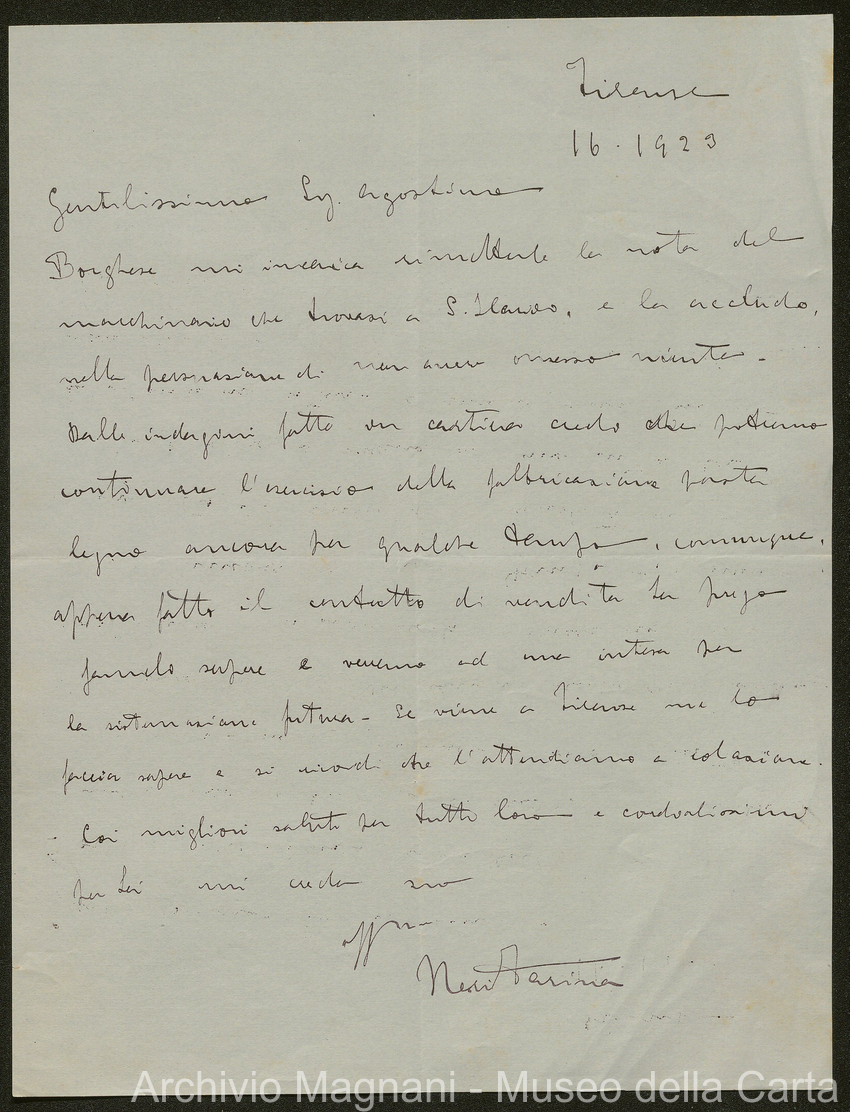 Firenze
16 . 1923
Gentilissimo Sig. Agostino
Borghese mi incarica rimetterle la nota del
macchinario che trovasi a S. Ilario, e la accludo,
nella persuasione di non avere omesso niente -
Dalle indagini fatte in cartiera credo che potremo
continuare l'esercizio della fabbricazione pasta
legno ancora per qualche tempo, comunque,
appena fatto il contratto di vendita La prego
farmelo sapere e verremo ad una intesa per
la sistemazione futura - Se viene a Firenze me lo
faccia sapere e si ricordi che l'attendiamo a colazione.
Coi migliori saluti per tutti loro e cordialissimi
per Lei mi creda suo
affmo
Neri Farina
Archivio Magnani - Museo della Carta